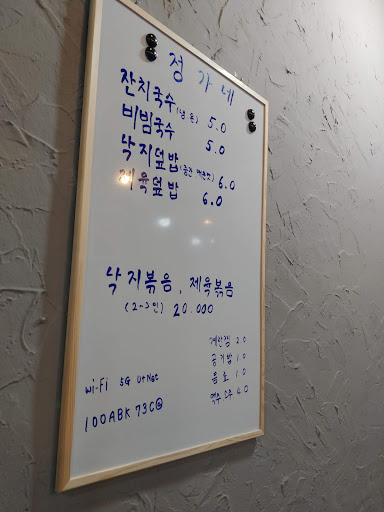 정가네
잔치국수(냉 온) 5.0
비빔국수 5.0
낙지덮밥(중간 매운맛) 6.0
제육덮밥 6.0
낙지볶음, 제육볶음
(2~3인) 20.000
계란찜 2.0
공기밥 1.0
음료 1.0
맥주 소주 4.0
Wi-Fi 5G U+Net
100ABK73C@